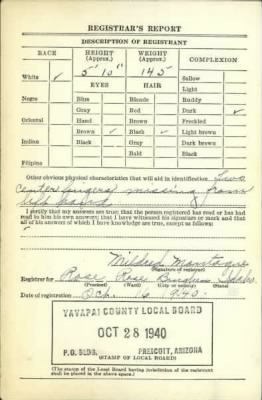 REGISTRAR'S REPORT
DESCRIPTION OF REGISTRANT
RACE HEIGHT (Approx.) WEIGHT (Approx.) COMPLEXION
White ✓ 5' 10" 145 Sallow
Light
EYES HAIR
Negro Blue Blonde Ruddy
Gray Red Dark ✓
Oriental Hazel Brown Freckled
Brown ✓ Black ✓ Light brown
Indian Black Gray Dark brown
Bald Black
Filipino
Other obvious physical characteristics that will aid in identification Two
center fingers missing from
left hand.
I certify that my answers are true; that the person registered has read or has had
read to him his own answers; that I have witnessed his signature or mark and that
all of his answers of which I have knowledge are true, except as follows:
Mildred Montague
(Signature of registrar)
Registrar for Rose Rose Bingham Idaho
(Precinct) (Ward) (City or county) (State)
Date of registration Oct. 16 1940
YAVAPAI COUNTY LOCAL BOARD
OCT 28 1940
P.O. BLDG. PRESCOTT, ARIZONA
(STAMP OF LOCAL BOARD)
(The stamp of the Local Board having jurisdiction of the registrant
shall be placed in the above space.)